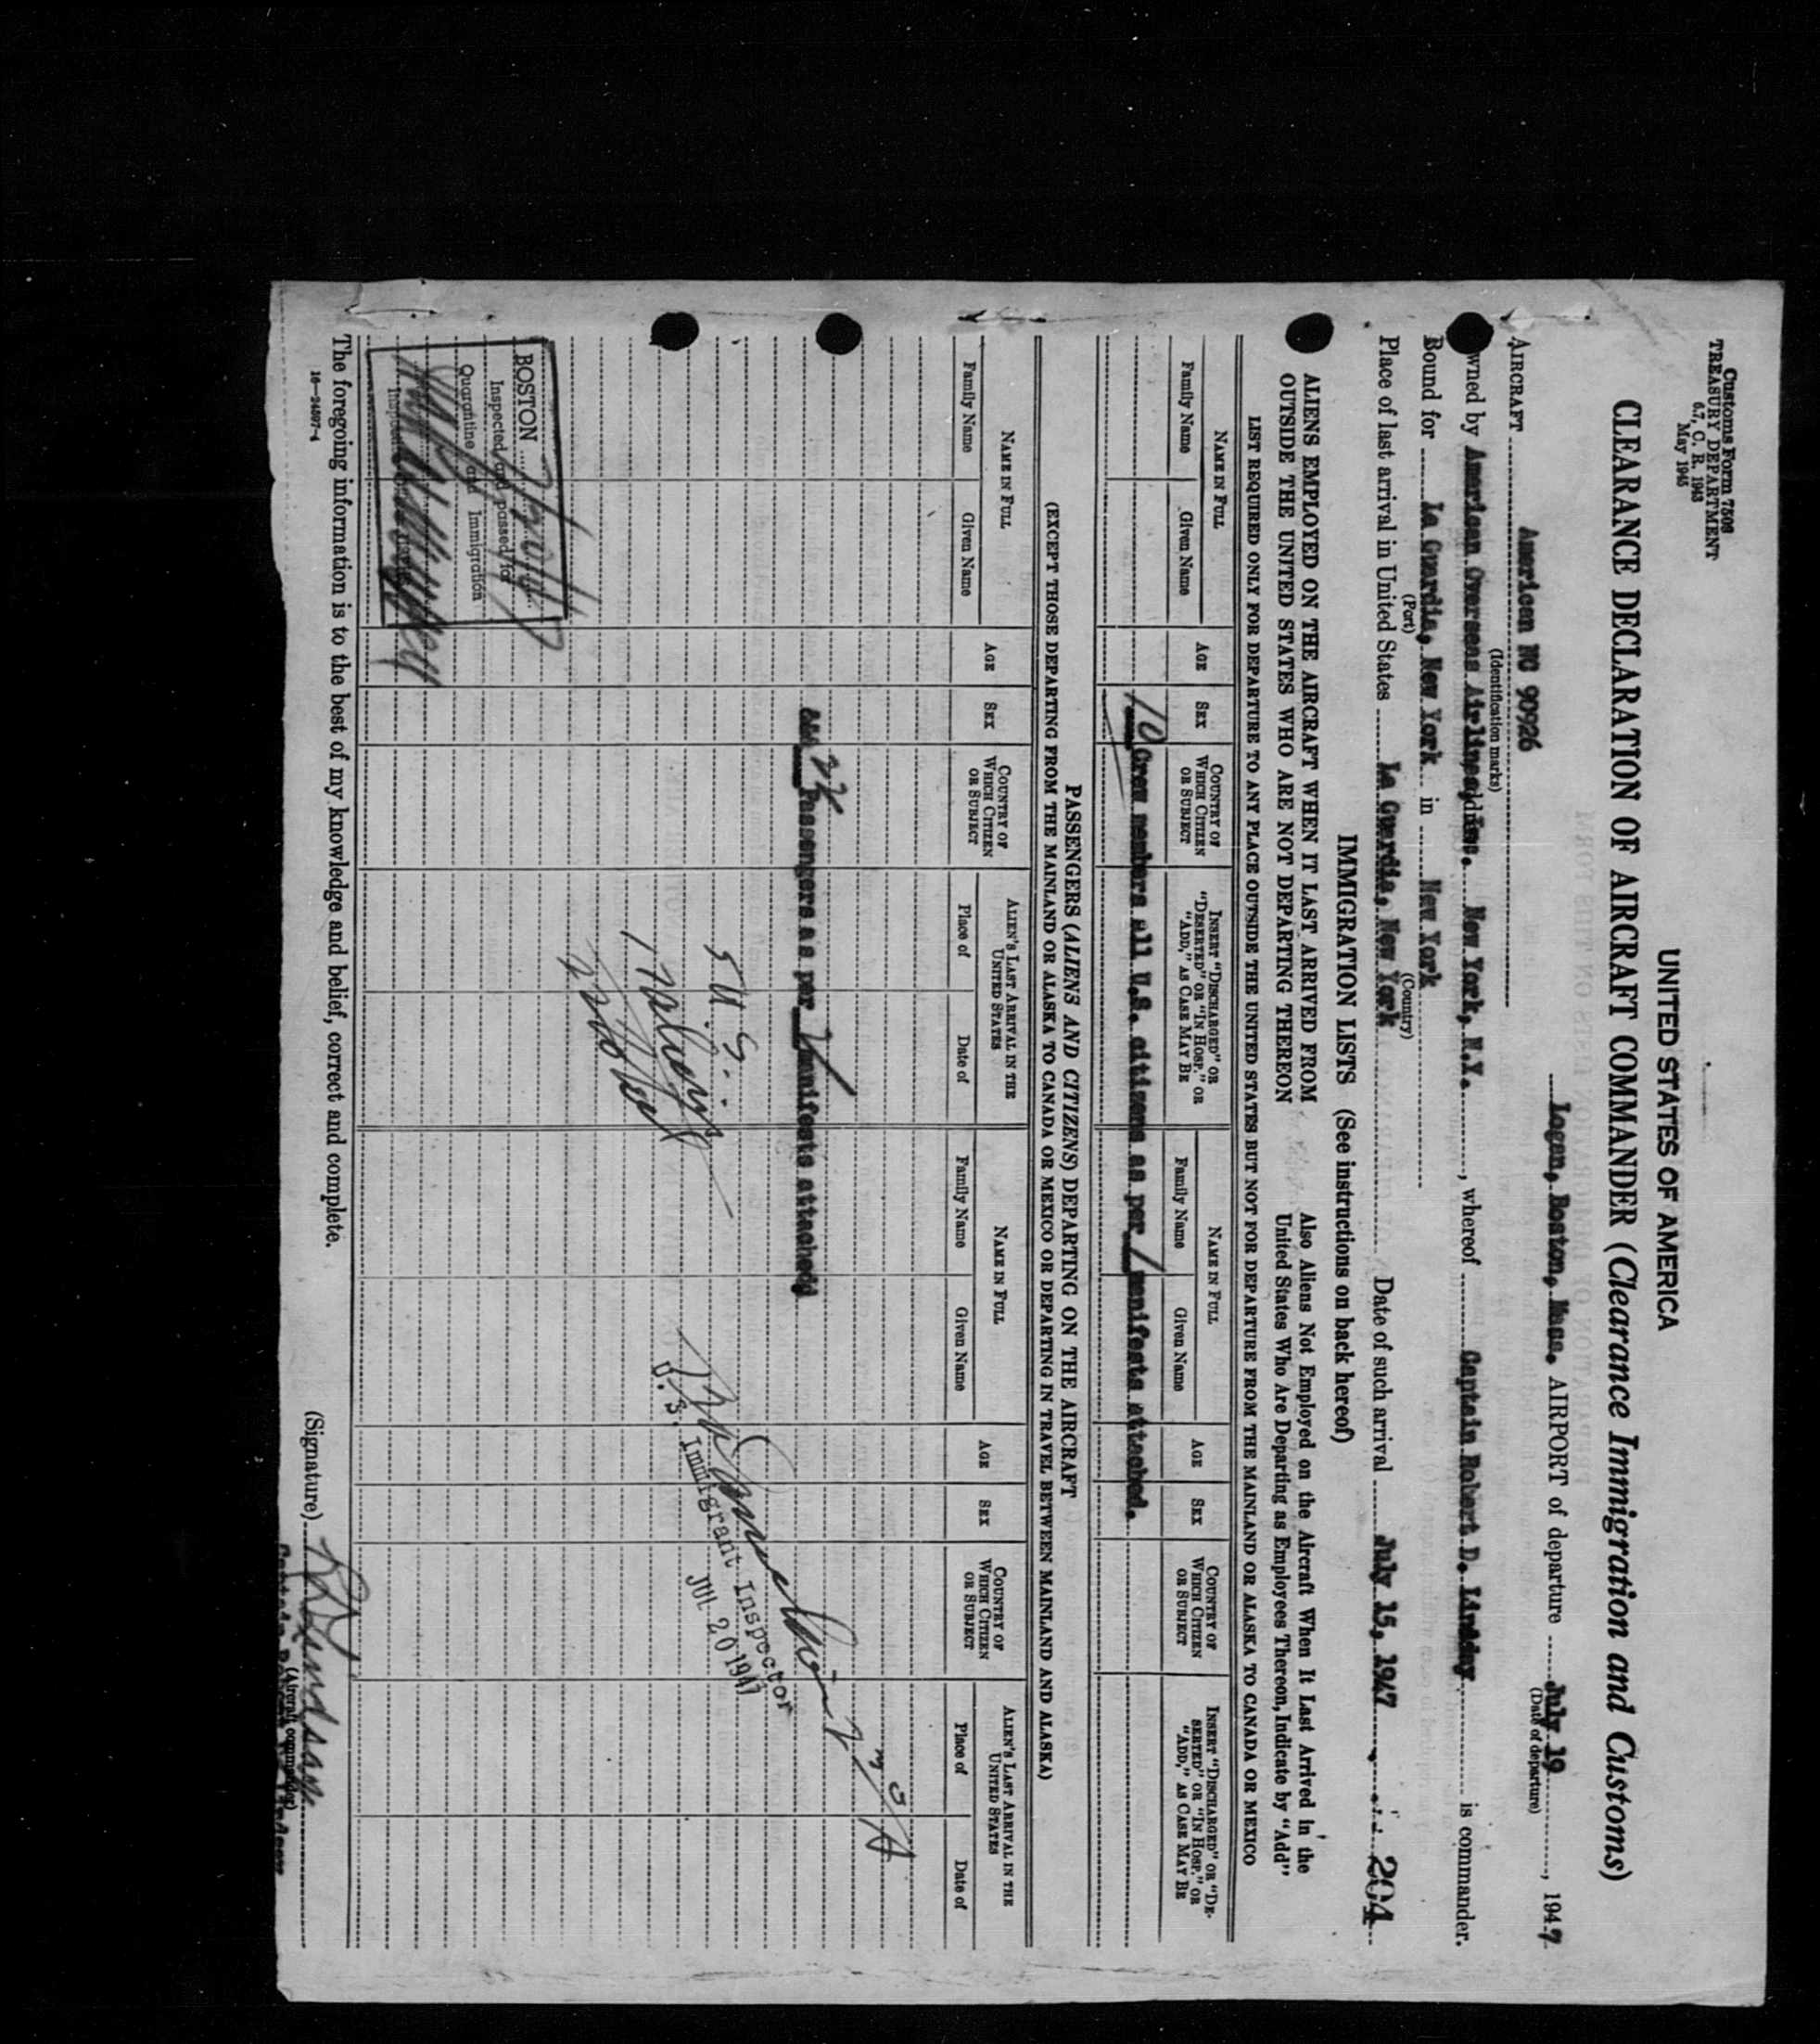 Customs Form 7508
TREASURY DEPARTMENT
6.7, C. R. 1943
May 1945
UNITED STATES OF AMERICA
CLEARANCE DECLARATION OF AIRCRAFT COMMANDER (Clearance Immigration and Customs)
Logan, Boston, Mass. AIRPORT of departure July 19, 1947
(Date of departure)
AIRCRAFT American NC 90926
(Identification marks)
owned by American Overseas Airlines, New York, N.Y., whereof Captain Robert D. Lindsay is commander.
Bound for La Guardia, New York in New York
(Port) (Country)
Place of last arrival in United States La Guardia, New York Date of such arrival July 15, 1947 204
IMMIGRATION LISTS (See instructions on back hereof)
ALIENS EMPLOYED ON THE AIRCRAFT WHEN IT LAST ARRIVED FROM OUTSIDE THE UNITED STATES WHO ARE NOT DEPARTING THEREON
Also Aliens Not Employed on the Aircraft When It Last Arrived in the United States Who Are Departing as Employees Thereon, Indicate by "Add"
LIST REQUIRED ONLY FOR DEPARTURE TO ANY PLACE OUTSIDE THE UNITED STATES BUT NOT FOR DEPARTURE FROM THE MAINLAND OR ALASKA TO CANADA OR MEXICO
NAME IN FULL
Family Name
Given Name
AGE
SEX
COUNTRY OF WHICH CITIZEN OR SUBJECT
INSERT "DISCHARGED" OR "DESERTED" OR "IN HOSP." OR "ADD," AS CASE MAY BE
NAME IN FULL
Family Name
Given Name
AGE
SEX
COUNTRY OF WHICH CITIZEN OR SUBJECT
INSERT "DISCHARGED" OR "DESERTED" OR "IN HOSP." OR "ADD," AS CASE MAY BE
10 Crew members all U.S. citizens as per 1 manifests attached.
PASSENGERS (ALIENS AND CITIZENS) DEPARTING ON THE AIRCRAFT
(EXCEPT THOSE DEPARTING FROM THE MAINLAND OR ALASKA TO CANADA OR MEXICO OR DEPARTING IN TRAVEL BETWEEN MAINLAND AND ALASKA)
NAME IN FULL
Family Name
Given Name
AGE
SEX
COUNTRY OF WHICH CITIZEN OR SUBJECT
ALIEN'S LAST ARRIVAL IN THE UNITED STATES
Place of
Date of
NAME IN FULL
Family Name
Given Name
AGE
SEX
COUNTRY OF WHICH CITIZEN OR SUBJECT
ALIEN'S LAST ARRIVAL IN THE UNITED STATES
Place of
Date of
Passengers as per manifests attached
5 U.S.
U.S. Immigrant Inspector
JUL 20 1947
BOSTON
Inspected and passed for
Quarantine and Immigration
The foregoing information is to the best of my knowledge and belief, correct and complete.
16—24597-4
(Signature) RD Lindsay
(Aircraft commander)